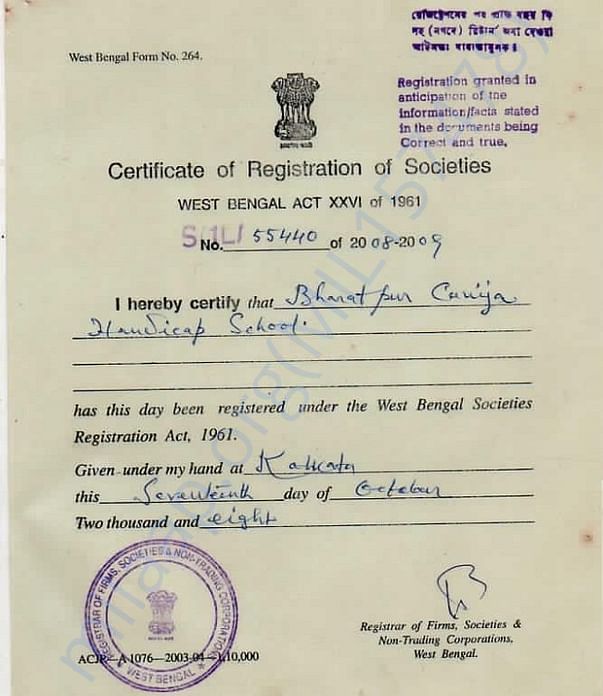 রেজিস্ট্রেশনের পর প্রতি বছর ফি
সহ (নগদে) রিটার্ন জমা দেওয়া
আইনতঃ বাধ্যতামূলক।
West Bengal Form No. 264.
Registration granted in
anticipation of the
information/facts stated
in the documents being
Correct and true,
Certificate of Registration of Societies
WEST BENGAL ACT XXVI of 1961
S/1L/ No. 55440 of 2008-2009
I hereby certify that Bharatpur
Handicap School.
has this day been registered under the West Bengal Societies
Registration Act, 1961.
Given under my hand at Kolkata
this Seventeenth day of October
Two thousand and eight
REGISTRAR OF FIRMS, SOCIETIES & NON-TRADING CORPORATION
WEST BENGAL
Registrar of Firms, Societies &
Non-Trading Corporations,
West Bengal.
ACJP—A-1076—2003-04—1,10,000